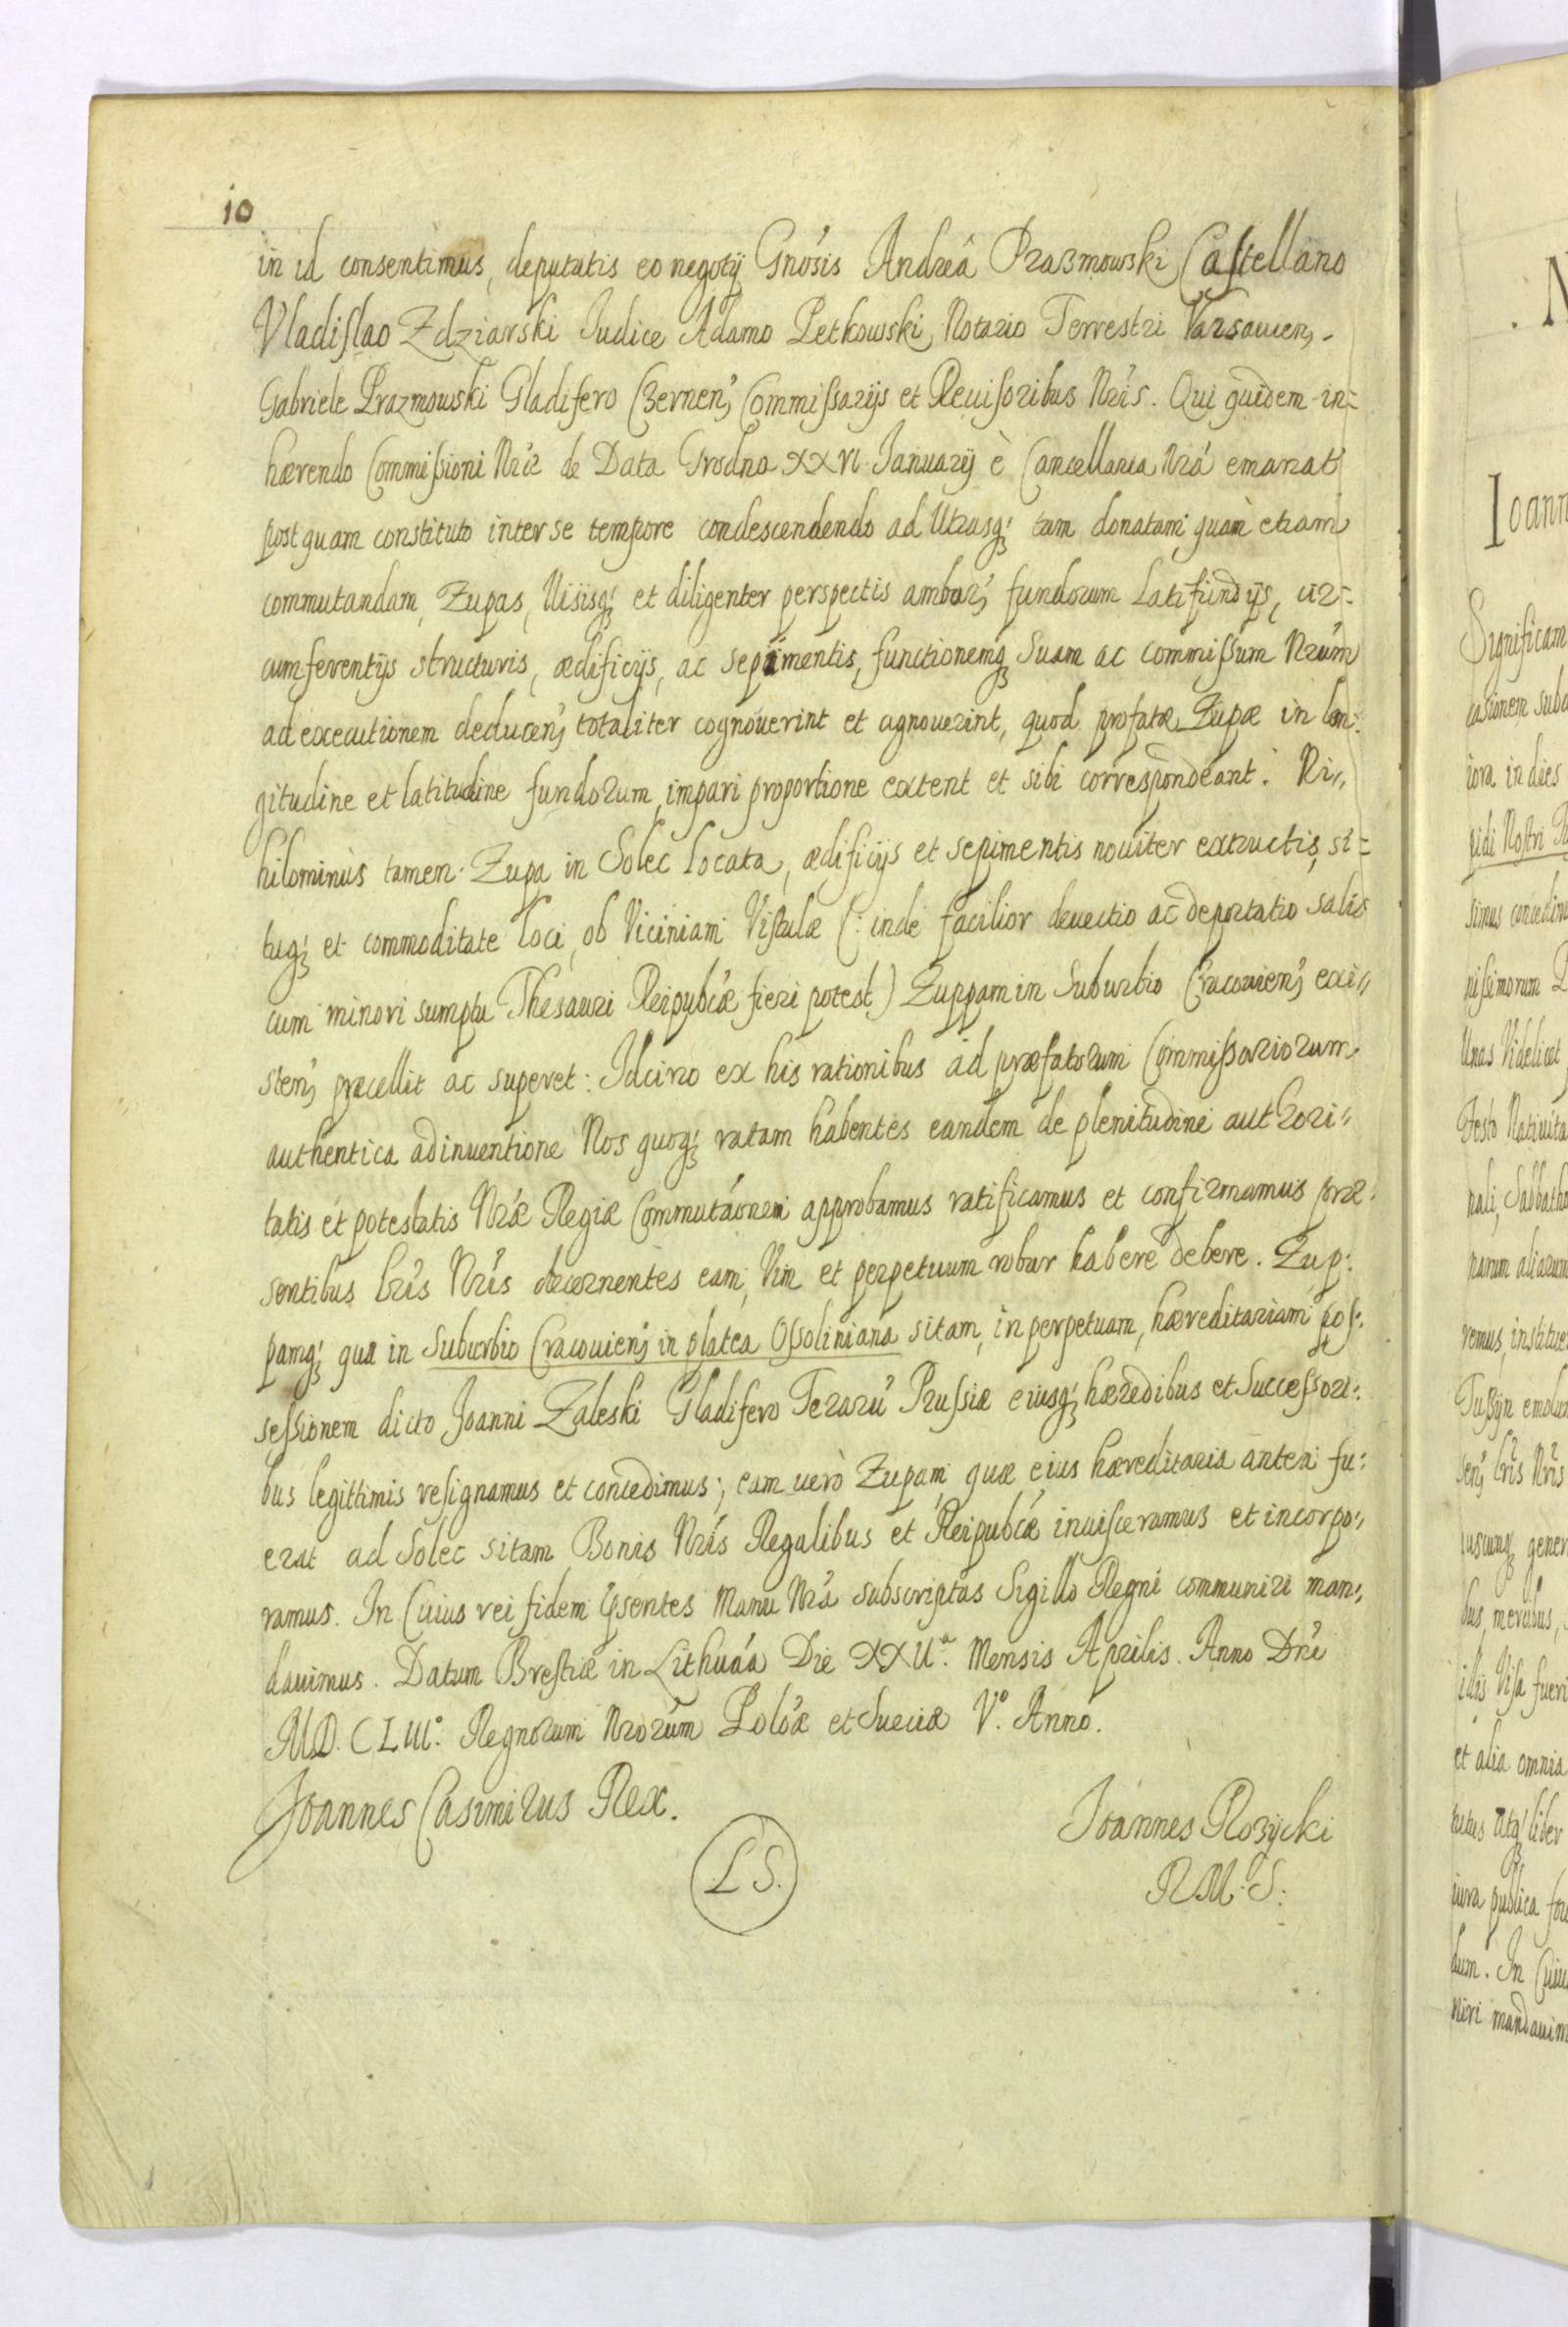 10
in id consentimus, deputatis eo negotij Gnósis Andreâ Prazmowski Castellano
Vladislao Zdziarski Iudice Adamo Petkowski, Notario Terrestri Varsauien,
Gabriele Prazmowski Gladifero Czernen, Commissarijs et Reuisoribus Nrís. Qui quidem in=
hærendo Commissioni Nræ de Data Grodna XXVI Ianuarij è Cancellaria Nrá emanat
post quam constituto inter se tempore condescendendo ad Utrasq, tam donatam, quàm etiam
commutandam, Zupas, Uisisq, et diligenter perspectis ambar, fundorum Latifundijs, cir=
cumferentijs structuris, ædificijs, ac sepimentis, functionemq, Suam ac commissum Nrúm
ad executionem deducen, totaliter cognouerint et agnouerint, quod præfatæ Zupæ in lon=
gitudine et latitudine fundorum, impari proportione extent et sibi correspondeant. Ni,,
hilominùs tamen Zupa in Solec Locata, ædificijs et sepimentis nouiter extructis, si=
tuq, et commoditate loci, ob Viciniam Vistulæ (: inde facilior deuectio ac deportatio salis
cum minori sumptu Thesauri Reipubcæ fieri potest) Zuppam in Suburbio Cracouien, exi,,
sten, præcellit ac superet: Idcirco ex his rationibus ad præfatorum Commissariorum
authentica adinuentione Nos quoq, ratam habentes eandem de plenitudine authori,,
tatis et potestatis Nræ Regiæ Commutáonem approbamus ratificamus et confirmamus præ:
sentibus Lrís Nrís decernentes eam, Vim et perpetuum robur habere debere. Zup:
pamq, quæ in Suburbio Cracouien, in platea Ossoliniana sitam, in perpetuam, hæreditariam pos:
sessionem dicto Joanni Zaleski Gladifero Terarú Prussiæ eiusq, hæredibus et Successori:
bus legittimis resignamus et concedimus; eam verò Zupam, quæ eius hæreditaria antea fu:
erat ad Solec sitam Bonis Nrís Regalibus et Reipubcæ inuisceramus et incorpo,,
ramus. In Cuius rei fidem psentes Manu Nrá subscriptas Sigillo Regni communiri man,,
dauimus. Datum Brestiæ in Lithuáa Die XXVª. Mensis Aprilis. Anno Dní
M.D.C LIIIº. Regnorum Nrorúm Polóæ et Sueciæ Vº. Anno.
Joannes Casimirus Rex.
L S.
Joannes Rozycki
R.M.S: